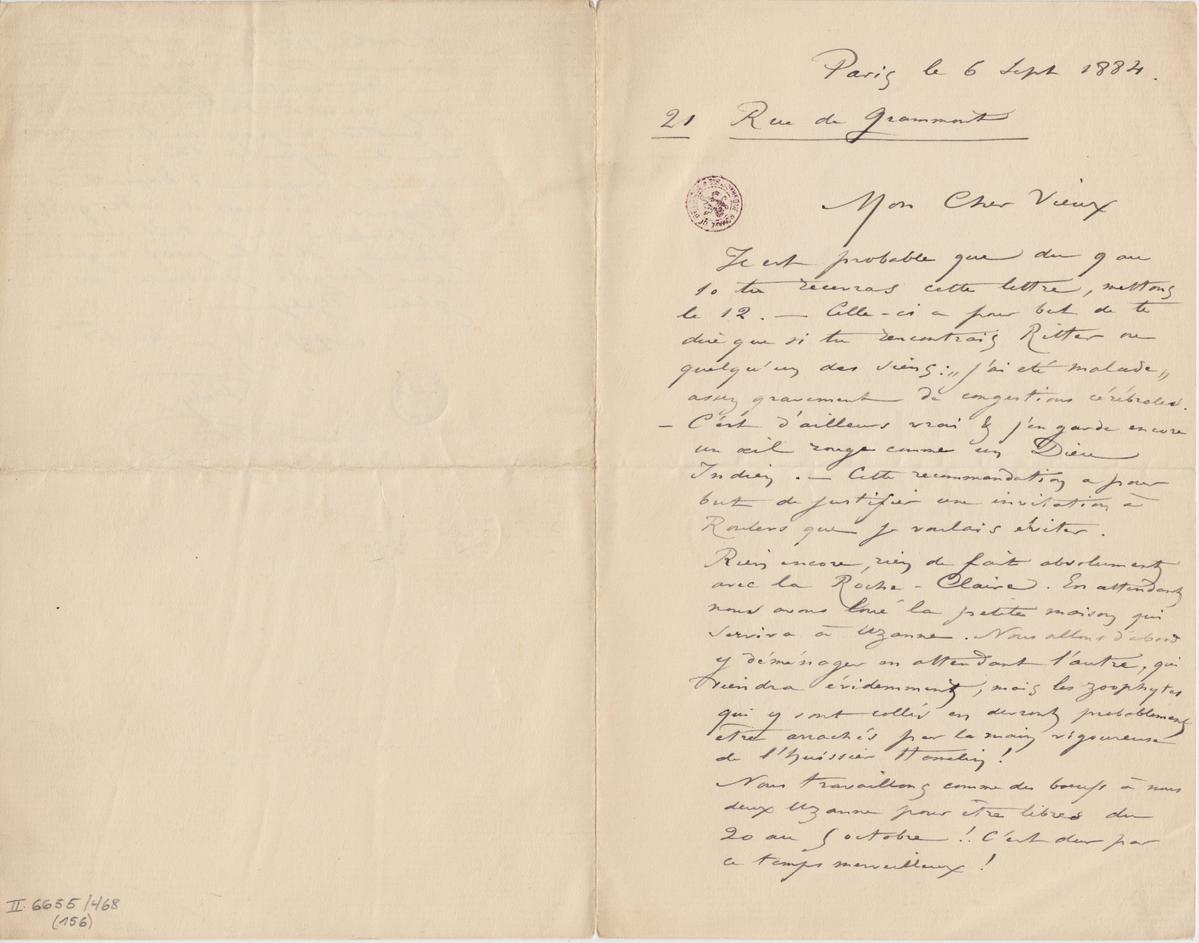 Paris le 6 Sept 1884.
21 Rue de Grammont
Mon Cher Vieux
Il est probable que du 9 au
10 tu recevras cette lettre, mettons
le 12. — Celle-ci a pour but de te
dire que si tu rencontrais Ritter ou
quelqu'un des siens : „j'ai été malade„
assez gravement de congestions cérébrales.
— C'est d'ailleurs vrai & j'en garde encore
un œil rouge comme un Dieu
Indien. — Cette recommandation a pour
but de justifier une invitation à
Roulers que je voulais éviter.
Rien encore, rien de fait absolument
avec la Roche-Claire. En attendant
nous avons loué la petite maison qui
servira à Uzanne. Nous allons d'abord
y déménager en attendant l'autre, qui
viendra évidemment, mais les zoophytes
qui y sont collés en devront probablement
être arrachés par la main vigoureuse
de l'huissier !
Nous travaillons comme des bœufs à nous
deux Uzanne pour être libres du
20 au 5 octobre !! C'est dur par
ce temps merveilleux !
II 6655/468
(156)